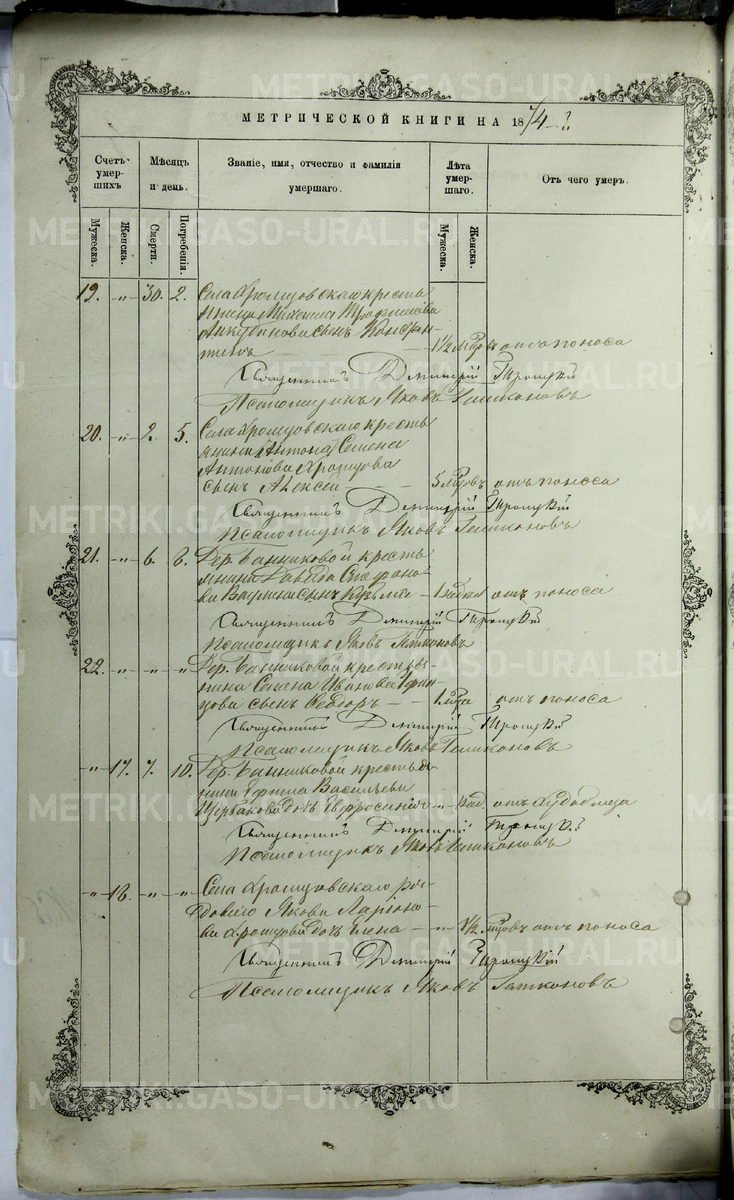 МЕТРИЧЕСКОЙ КНИГИ НА 1874
Счетъ умершихъ
Мѣсяцъ и день.
Званіе, имя, отчество и фамилія умершаго.
Лѣта умершаго.
Отъ чего умеръ.
Мужеска.
Женска.
Смерти.
Погребенія.
Мужеска.
Женска.
19. " 30. 2. Села Хромцовскаго кресть
янина Михаила Трофимова
сынъ
1½ отъ поноса
Священникъ Димитрій Троицкій
Псаломщикъ Яковъ
20. " 2. 5. Села Хромцовскаго кресть
янина Антона Семена
Антонова Хромцова
сынъ Алексей 5 отъ поноса
Священникъ Димитрій Троицкій
Псаломщикъ Яковъ
21. " 6. 8. Дер. Банниковой кресть
янина Давида Стефано
ва сынъ Кузьма отъ поноса
Священникъ Димитрій Троицкій
Псаломщикъ Яковъ
22. " " " Дер. Банниковой крестья
нина Семена Иванова
сынъ Ѳедоръ 1 года отъ поноса
Священникъ Димитрій Троицкій
Псаломщикъ Яковъ
" 17. 7. 10. Дер. Банниковой крестья
нина Васильева
Щербакова дочь Евфросинія " отъ
Священникъ Димитрій Троицкій
Псаломщикъ Яковъ
" 18. " " Села Хромцовскаго ря
доваго Якова Ларіоно
ва Хромцова дочь Елена " 1½ отъ поноса
Священникъ Димитрій Троицкій
Псаломщикъ Яковъ
METRIKI.GASO-URAL.RU